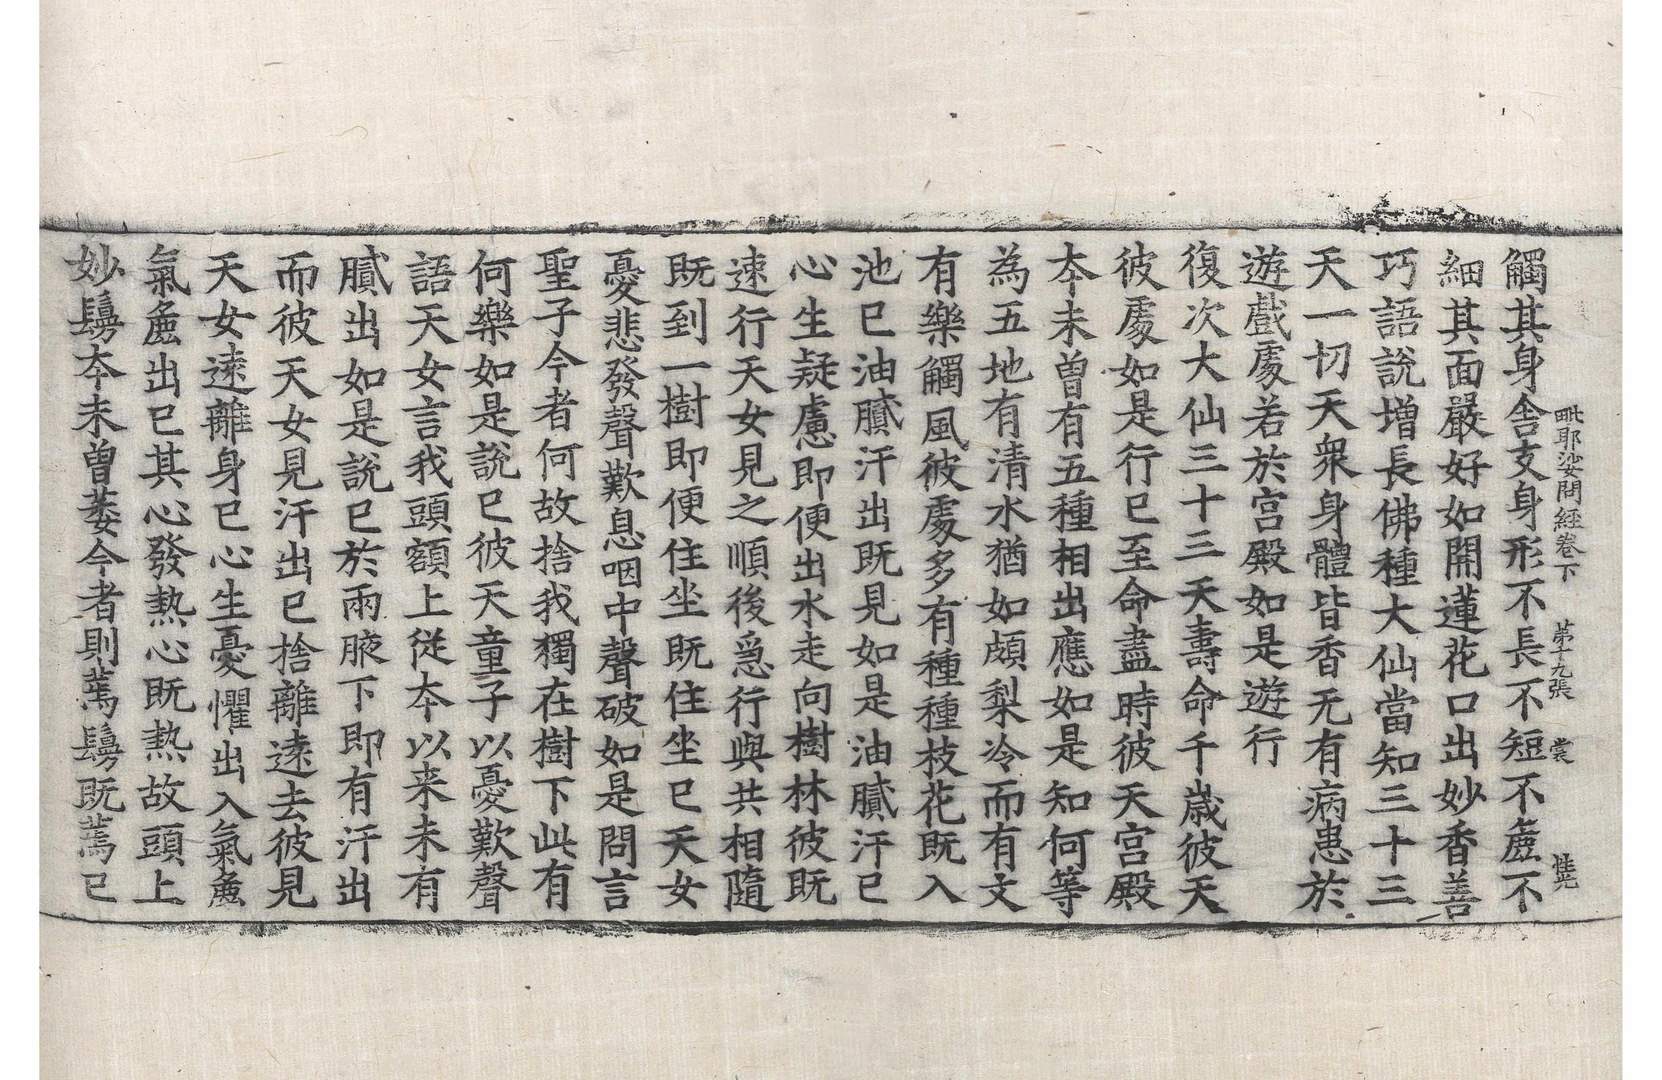 毗耶娑問經卷下 第十九張 裳
觸其身舍支身形不長不短不麁不
細其面嚴好如開蓮花口出妙香善
巧語說增長佛種大仙當知三十三
天一切天衆身體皆香无有病患於
遊戲處若於宮殿如是遊行
復次大仙三十三天壽命千歲彼天
彼處如是行已至命盡時彼天宮殿
夲未曾有五種相出應如是知何等
為五地有清水猶如頗梨冷而有文
有樂觸風彼處多有種種枝花既入
池已油膩汗出既見如是油膩汗已
心生疑慮即便出水走向樹林彼既
速行天女見之順後急行與共相隨
既到一樹即便住坐既住坐已天女
憂悲發聲歎息咽中聲破如是問言
聖子今者何故捨我獨在樹下此有
何樂如是說已彼天童子以憂歎聲
語天女言我頭額上從夲以来未有
膩出如是說已於兩腋下即有汗出
而彼天女見汗出已捨離遠去彼見
天女遠離身已心生憂懼出入氣麁
氣麁出已其心發热心既热故頭上
妙鬘夲未曾萎今者則蔫鬘既蔫已